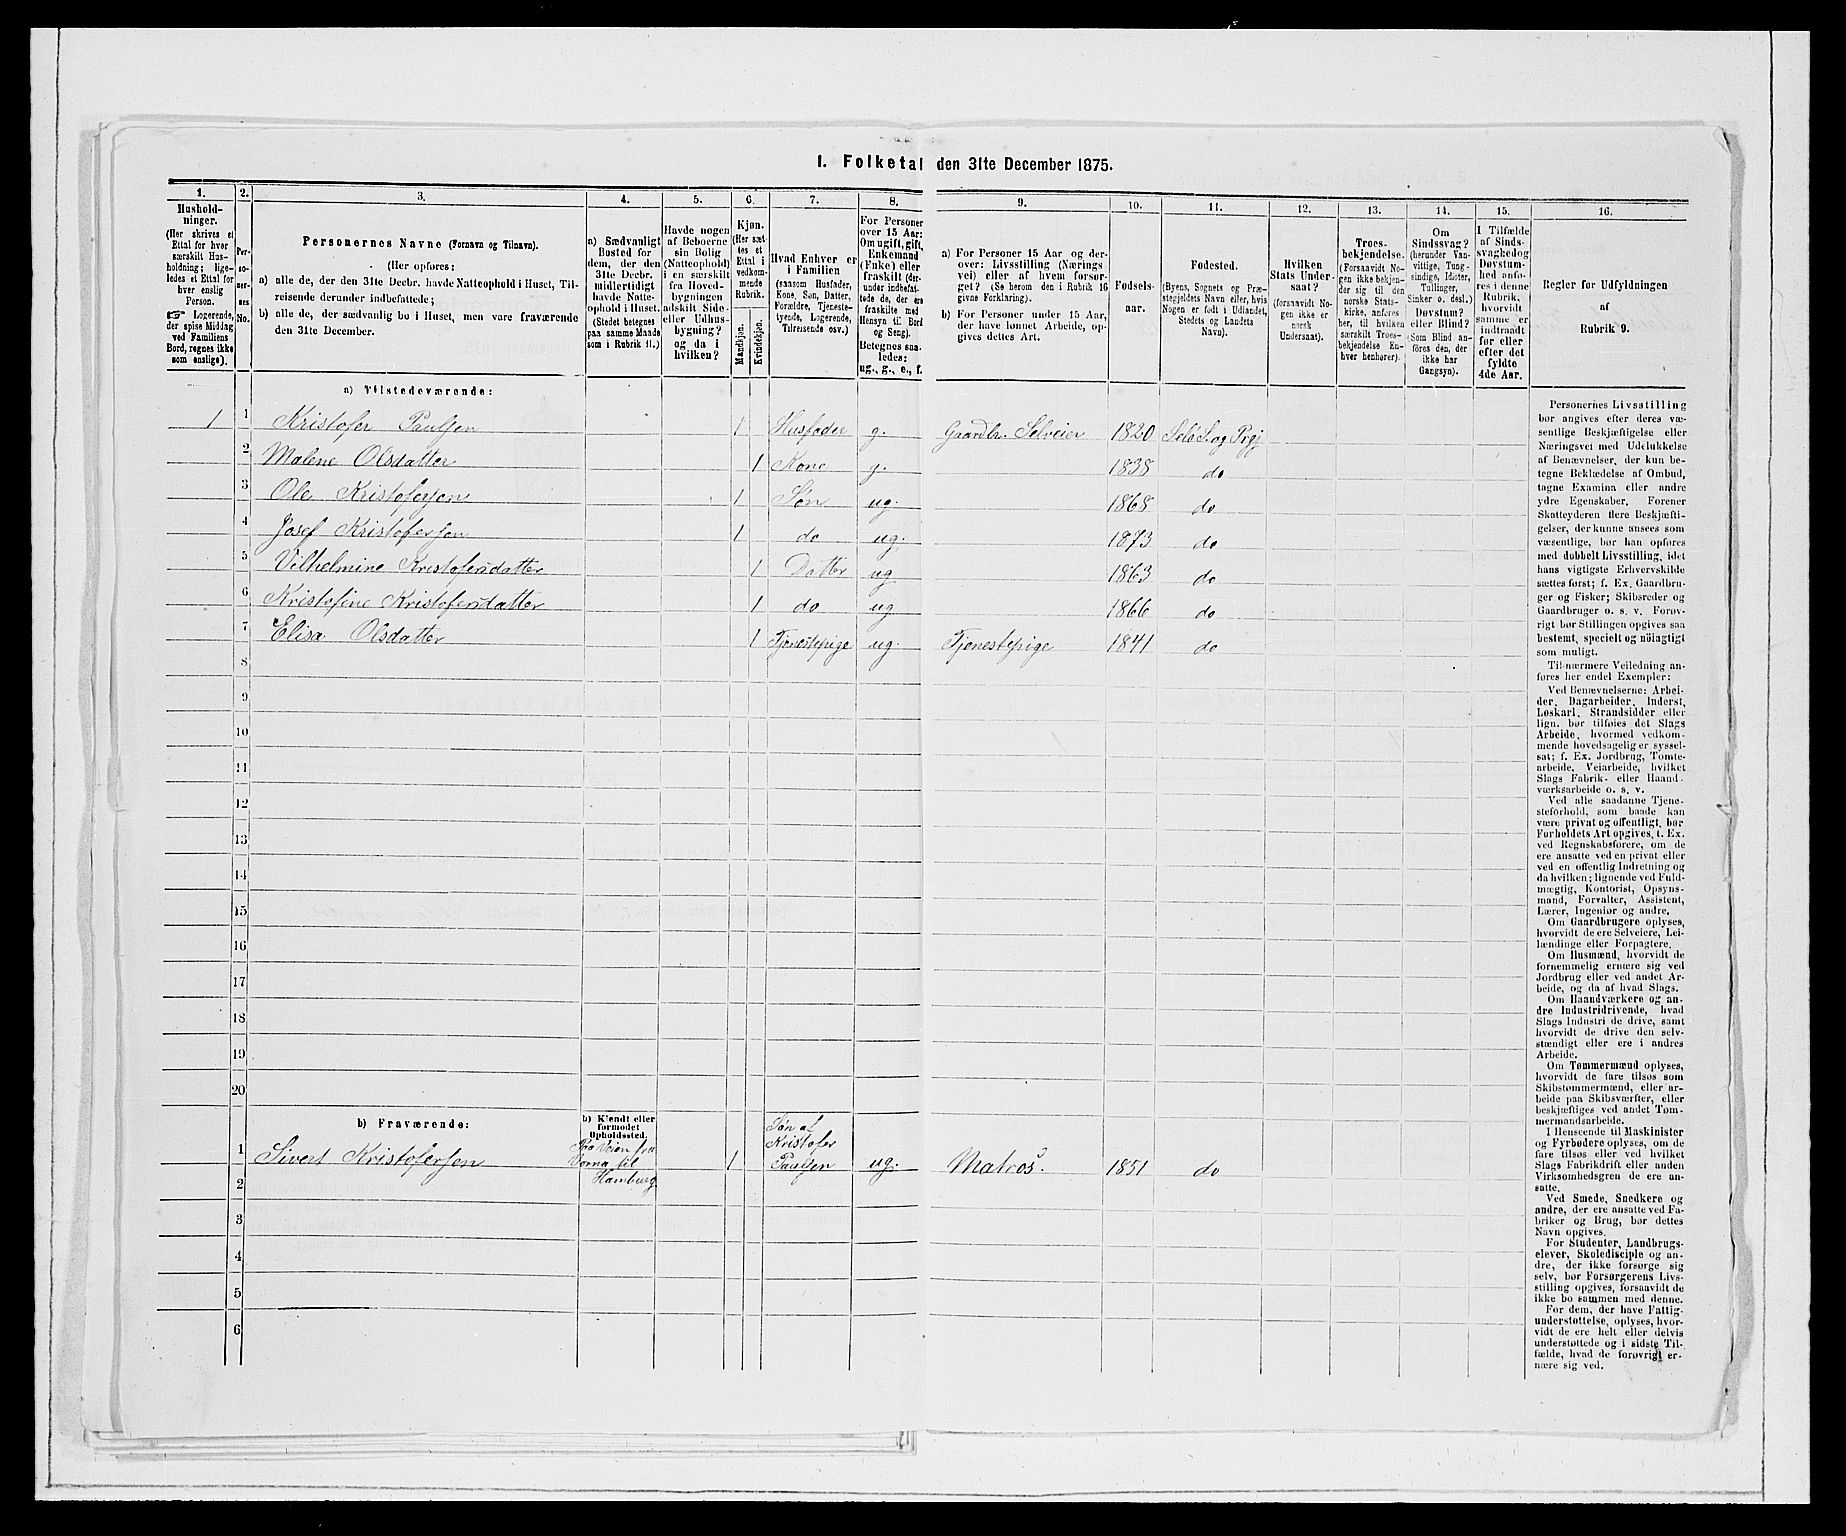 I. Folketal den 31te December 1875.
1. 2. 3. 4. 5. 6. 7. 8. 9. 10. 11. 12. 13. 14. 15. 16.
Hushold-
ninger.
(Her skrives et
Ettal for hver
særskilt Hus-
holdning; lige-
ledes et Ettal for
hver enslig
Person.
☞ Logerende,
der spise Middag
ved Familiens
Bord, regnes ikke
som enslige).
Per-
so-
ner-
nes
No.
Personernes Navne (Fornavn og Tilnavn).
(Her opføres:
a) alle de, der den 31te Decbr. havde Natteophold i Huset, Til-
reisende derunder indbefattede;
b) alle de, der sædvanlig bo i Huset, men vare fraværende
den 31te December.
a) Sædvanligt
Bosted for
dem, der den
31te Decbr.
midlertidigt
havde Natte-
ophold i Huset.
(Stedet betegnes
paa samme Maade
som i Rubrik 11.)
Havde nogen
af Beboerne
sin Bolig
(Natteophold)
i en særskilt
fra Hoved-
bygningen
adskilt Side-
eller Udhus-
bygning?
og da i
hvilken?
Kjøn.
(Her sæt-
tes et
Ettal i
vedkom-
mende
Rubrik.
Mandkjøn.
Kvindekjøn.
Hvad Enhver er
i Familien
(saasom Husfader,
Kone, Søn, Datter,
Forældre, Tjeneste-
tyende, Logerende,
Tilreisende osv.)
For Personer
over 15 Aar:
Om ugift, gift,
Enkemand
(Enke) eller
fraskilt (der-
under indbefat-
tede de, der ere
fraskilte med
Hensyn til Bord
og Seng).
Betegnes saa-
ledes:
ug., g., e., f.
a) For Personer 15 Aar og der-
over: Livsstilling (Nærings
vei) eller af hvem forsør-
get? (Se herom den i Rubrik 16
givne Forklaring).
b) For Personer under 15 Aar,
der have lønnet Arbeide, op-
gives dettes Art.
Fødsels-
aar.
Fødested.
(Byens, Sognets og Præ-
stegjeldets Navn eller, hvis
Nogen er født i Udlandet,
Stedets og Landets
Navn).
Hvilken
Stats Under-
saat?
(forsaavidt No-
gen ikke er
norsk
Undersaat).
Troes-
bekjendelse.
(Forsaavidt No-
gen ikke bekjen-
der sig til den
norske Stats-
kirke, anføres
her, til hvilken
særskilt Troes-
bekjendelse En-
hver henhører).
Om
Sindssvag?
(herunder Van-
vittige, Tung-
sindige, Idioter,
Tullinger,
Sinker o. desl.)
Døvstum?
eller Blind?
(Som Blind an-
føres den, der
ikke har
Gangsyn).
I Tilfælde
af Sinds-
svaghed og
Døvstum-
hed anfø-
res i denne
Rubrik,
hvorvidt
samme er
indtraadt
før eller
efter det
fyldte
4de Aar.
Regler for Udfyldningen
af
Rubrik 9.
a) Tilstedeværende:
1 1 Kristofer Paulsen 1 Husfader g. Gaardbr. Selveier 1820 Selø S. og Prgj
2 Malene Olsdatter 1 Kone g. 1838 do
3 Ole Kristofersen 1 Søn ug. 1868 do
4 Josef Kristofersen 1 do ug. 1873 do
5 Vilhelmine Kristofersdatter 1 Datter ug 1863 do
6 Kristofine Kristofersdatter 1 do ug 1866 do
7 Elisa Olsdatter 1 Tjenestepige ug. Tjenestepige 1841 do
8
9
10
11
12
13
14
15
16
17
18
19
20
b) Fraværende:
b) Kjendt eller
formodet
Opholdssted.
1 Sivert Kristofersen Paa Veien fra
til
Hamburg 1 Søn af
Kristofer
Paulsen ug. Matros. 1851 do
2
3
4
5
6
Personernes Livsstilling
bør angives efter deres væ-
sentlige Beskjæftigelse eller
Næringsvei med Udelukkelse
af Benævnelser, der kun be-
tegne Beklædelse af Ombud,
tagne Examina eller andre
ydre Egenskaber. Forener
Skatteyderen flere Beskjæfti-
gelser, der kunne ansees som
væsentlige, bør han opføres
med dobbelt Livsstilling, idet
hans vigtigste Erhvervskilde
sættes først; f. Ex. Gaardbru-
ger og Fisker; Skibsreder og
Gaardbruger o. s. v. Forøv-
rigt bør Stillingen opgives saa
bestemt, specielt og nøiagtigt
som muligt.
Til nærmere Veiledning an-
føres her endel Exempler:
Ved Benævnelserne: Arbei-
der, Dagarbeider, Inderst,
Løskarl, Strandsidder eller
lign. bør tilføies det Slags
Arbeide, hvormed vedkom-
mende hovedsagelig er syssel-
sat; f. Ex. Jordbrug, Tomte-
arbeide, Veiarbeide, hvilket
Slags Fabrik- eller Haand-
værksarbeide o. s. v.
Ved alle saadanne Tjene-
steforhold, som baade kan
være privat og offentligt, bør
Forholdets Art opgives, t. Ex.
ved Regnskabsførere, om de
ere ansatte ved en privat eller
ved en offentlig Indretning og
da hvilken; lignende ved Fuld-
mægtig, Kontorist, Opsyns-
mand, Forvalter, Assistent,
Lærer, Ingeniør og andre.
Om Gaardbrugere oplyses,
hvorvidt de ere Selveiere, Lei-
lændinge eller Forpagtere.
Om Husmænd, hvorvidt de
fornemmelig ernære sig ved
Jordbrug eller ved andet Ar-
beide, og da af hvad Slags.
Om Haandværkere og an-
dre Industridrivende, hvad
Slags Industri de drive, samt
hvorvidt de drive den selv-
stændigt eller ere i andres
Arbeide.
Om Tømmermænd oplyses,
hvorvidt de fare tilsøs som
Skibstømmermænd, eller ar-
beide paa Skibsværfter, eller
beskjæftiges ved andet Tøm-
mermandsarbeide.
I Henseende til Maskinister
og Fyrbødere oplyses, om de
fare tilsøs eller ved hvilket
Slags Fabrikdrift eller anden
Virksomhedsgren de ere an-
satte.
Ved Smede, Snedkere og
andre, der ere ansatte ved Fa-
briker og Brug, bør dettes
Navn opgives.
For Studenter, Landbrugs-
elever, Skoledisciple og an-
dre, der ikke forsørge sig
selv, bør Forsørgerens Livs-
stilling opgives, forsaavidt de
ikke bo sammen med denne.
For dem, der have Fattig-
understøttelse, oplyses, hvor-
vidt de ere helt eller delvis
understøttede og i sidste Til-
fælde, hvad de forøvrigt er-
nære sig ved.